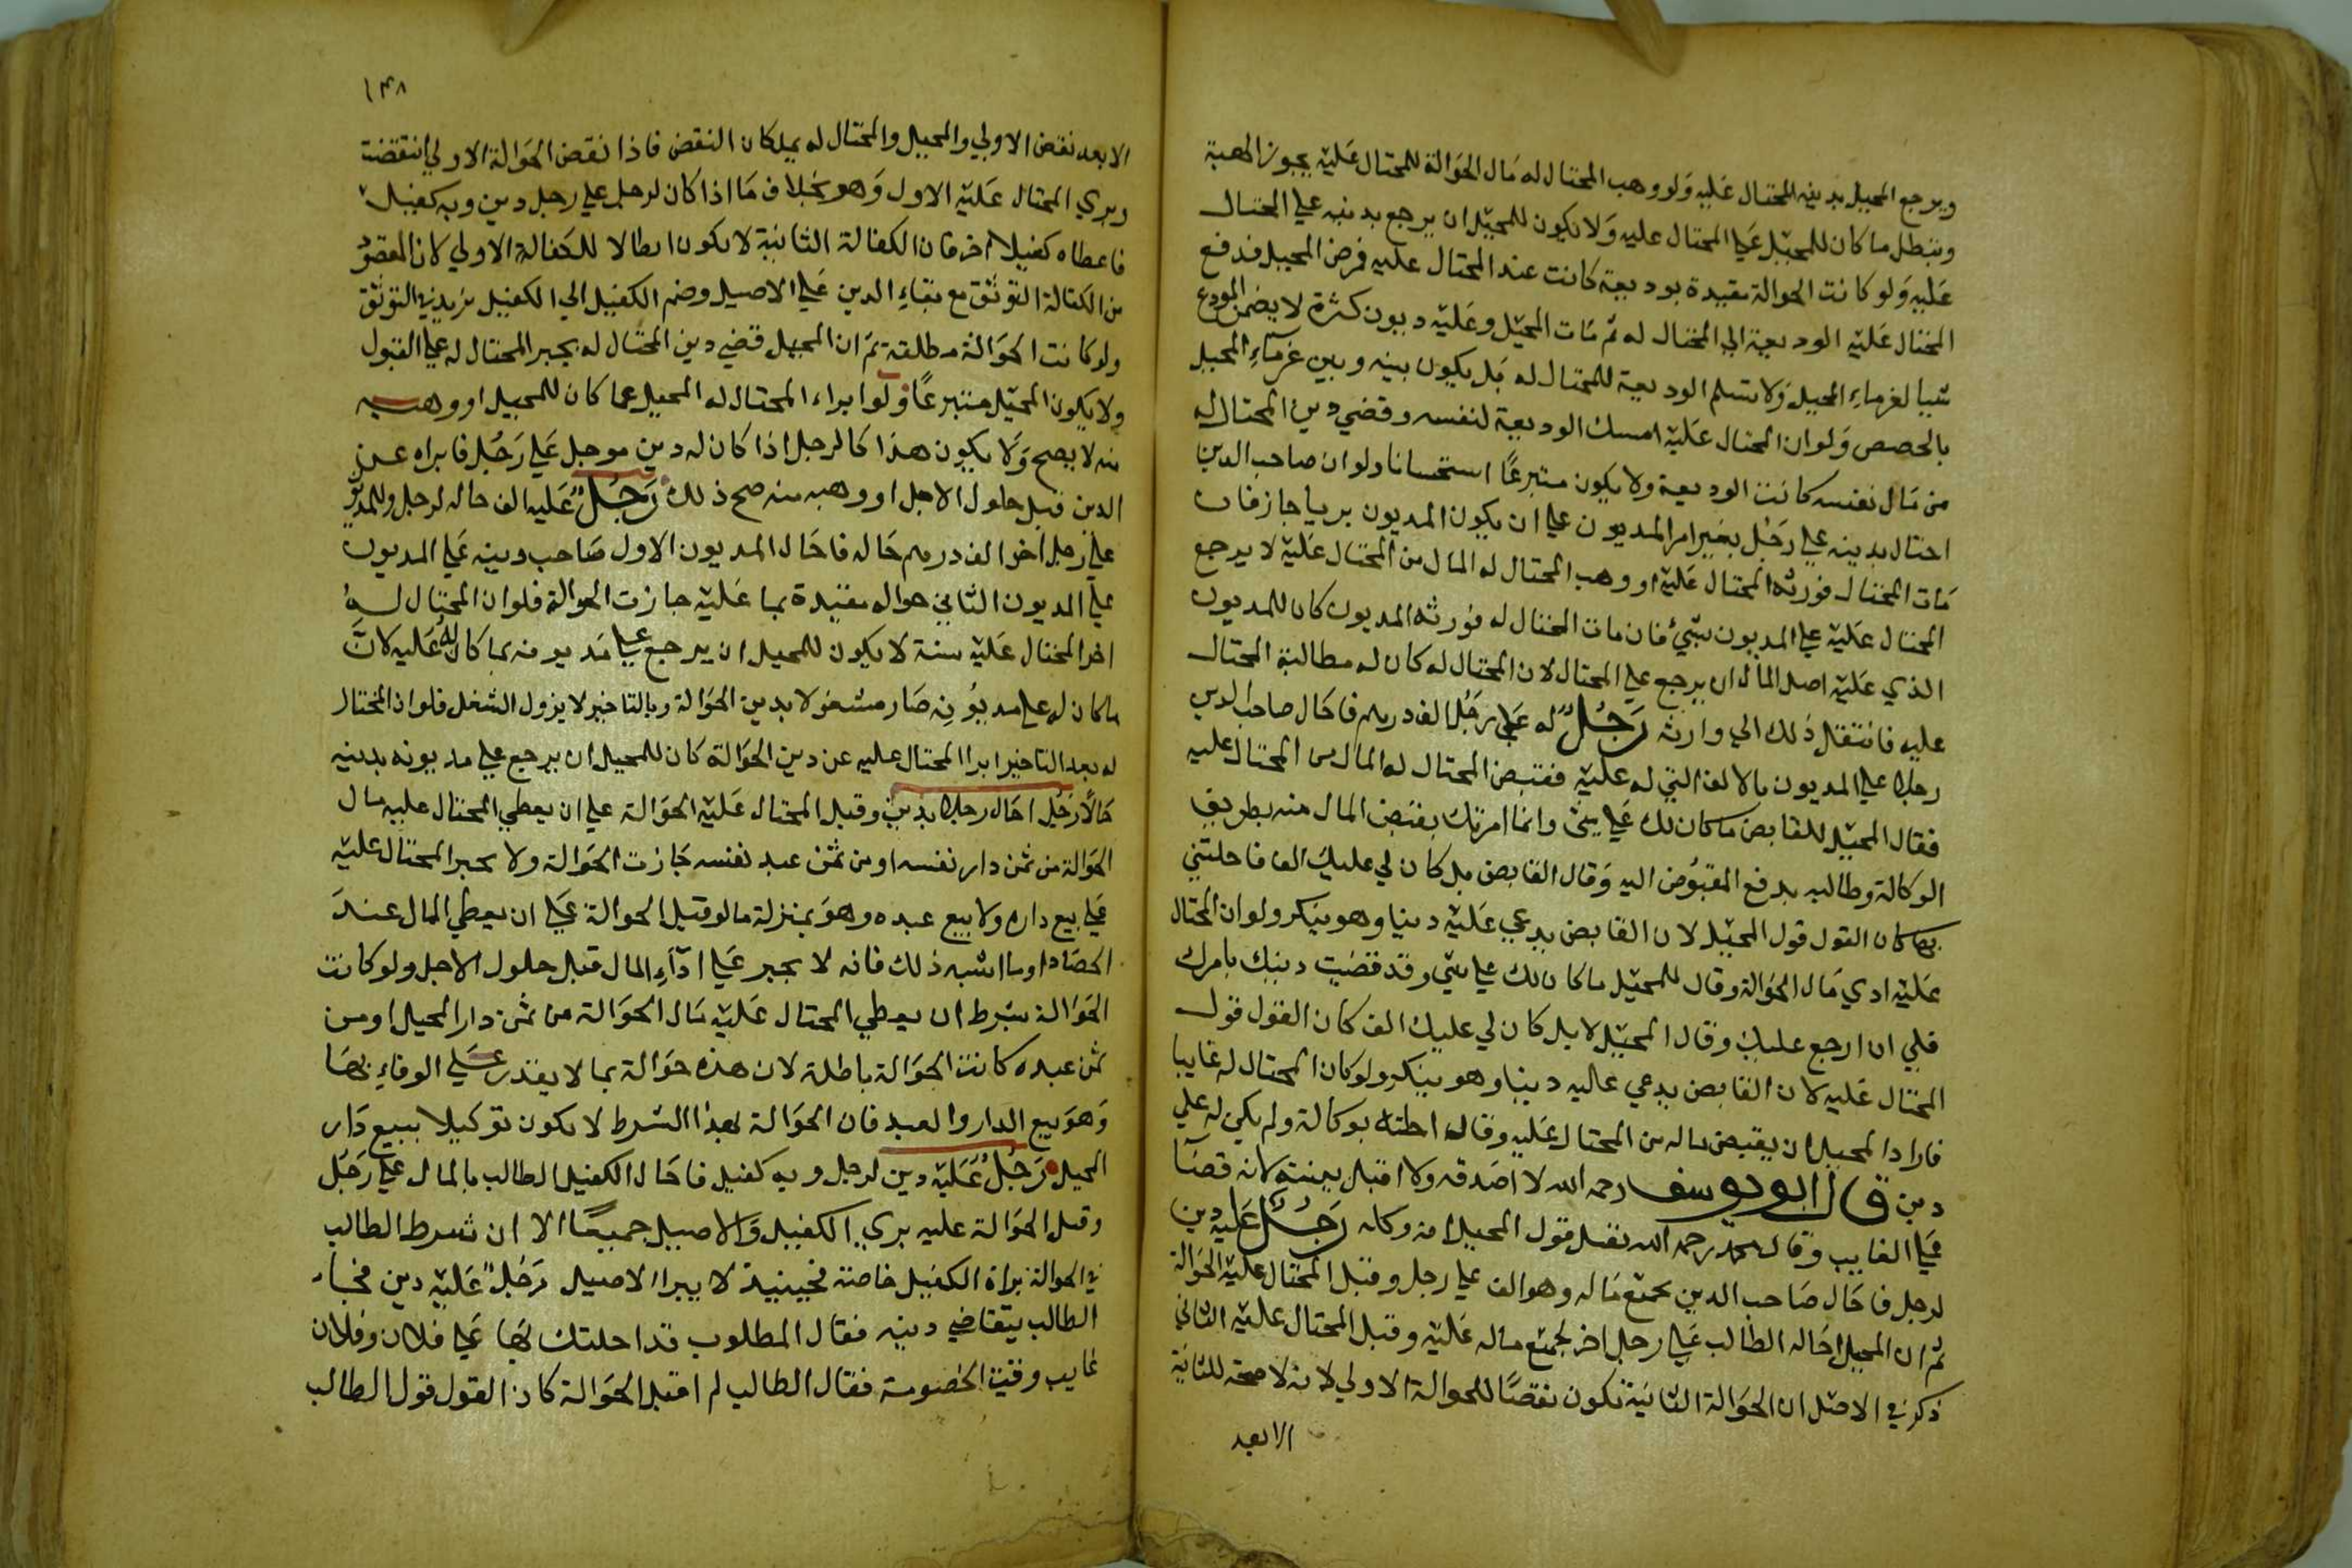 ويرجع المحيل بدينه المحتال عليه ولو وهب المحتال له مال الحوالة للمحتال عليه يجوز الهبة
وتبطل ما كان للمحيل على المحتال عليه ولا يكون للمحيل ان يرجع بدينه على المحتال
عليه ولو كانت الحوالة مقيدة بوديعة كانت عند المحتال عليه فمرض المحيل فدفع
المحتال عليه الوديعة الى المحتال له ثم مات المحيل وعليه ديون كثرة لا يضمن المودع
شيا لغرماء المحيل ولا تسلم الوديعة للمحتال له بل يكون بينه وبين غرماء المحيل
بالحصص ولو ان المحتال عليه امسك الوديعة لنفسه وقضي دين المحتال له
من مال نفسه كانت الوديعة ولا يكون متبرعًا استحسانا ولو ان صاحب الدين
احتال بدينه على رجل بغير امر المديون على ان يكون المديون بريا جاز فان
مات المحتال فورثه المحتال عليه او وهب المحتال له المال من المحتال عليه لا يرجع
المحتال عليه على المديون بشيء فان مات المحتال له فورثه المديون كان للمديون
الذي عليه اصل المال ان يرجع على المحتال لان المحتال له كان له مطالبة المحتال
عليه فانتقل ذلك الى وارثه رجل له على رجل الف درهم فاحال صاحب الدين
رجلا على المديون بالالف التي له عليه فقبض المحتال له المال من المحتال عليه
فقال المحيل للقابض ما كان لك على شئ وانما امرتك بقبض المال منه بطريق
الوكالة وطالبه بدفع المقبوض اليه وقال القابض بل كان لي عليك الف فاحلتني
بها كان القول قول المحيل لان القابض يدعي عليه دينا وهو ينكر ولو ان المحتال
عليه ادي مال الحوالة وقال للمحيل ما كان لك على شي وقد قضيت دينك بامرك
فلي ان ارجع عليك وقال المحيل لا بل كان لي عليك الف كان القول قول
المحتال عليه لان القابض يدعي عاليه دينا وهو ينكر ولو كان المحتال له غايبا
فاراد المحيل ان يقبض ماله من المحتال عليه وقال احلته بوكالة ولم يكن له علي
دين قال ابو يوسف رحمه الله لا اصدقه ولا اقبل بينته لانه قضآ
على الغايب وقال محمد رحمه الله نقبل قول المحيل انه وكله رجل عليه دين
لرجل فاحال صاحب الدين بجميع ماله وهو الف على رجل وقبل المحتال عليه الحوالة
ثم ان المحيل احاله الطالب على رجل اخر بجميع ماله عليه وقبل المحتال عليه الثاني
ذكر في الاصل ان الحوالة الثانية تكون نقضًا للحوالة الاولي لانه لا صحة للثانية
الا بعد
١٤٨
الا بعد نقض الاولي والمحيل والمحتال له يملكان النقض فاذا نقض الحوالة الاولي انتقضت
وبري المحتال عليه الاول وهو بخلاف ما اذا كان لرجل على رجل دين وبه كفيل
فاعطاه كفيلا اخر فان الكفالة الثانية لا يكون ابطالا للكفالة الاولي لان المقصود
من الكفالة التوثق مع بقاء الدين على الاصيل وضم الكفيل الى الكفيل يزيد فيه التوثق
ولو كانت الحوالة مطلقة ثم ان المحيل قضي دين المحتال له يجبر المحتال له على القبول
ولا يكون المحيل متبرعًا ولو ابراء المحتال له المحيل عما كان للمحيل او وهبه
منه لا يصح ولا يكون هذا كالرجل اذا كان له دين موجل على رجل فابراه عن
الدين قبل حلول الاجل او وهبه منه صح ذلك رجل عليه الف حاله لرجل وللمديون
على رجل اخر الف درهم حاله فاحال المديون الاول صاحب دينه على المديون
على المديون الثاني حواله مقيدة بما عليه جازت الحوالة فلو ان المحتال له
اخر المحتال عليه سنة لا يكون للمحيل ان يرجع على مديونه بما كان له عليه لان
ما كان له على مديونه صار مشغولا بدين الحوالة وبالتاخير لا يزول الشغل فلو ان المحتال
له بعد التاخير ابرا المحتال عليه عن دين الحوالة كان للمحيل ان يرجع على مديونه بدينه
حالًا رجل احال رجلا بدين وقبل المحتال عليه الحوالة على ان يعطي المحتال عليه مال
الحوالة من ثمن دار نفسه او من ثمن عبد نفسه جازت الحوالة ولا يجبر المحتال عليه
على بيع داره ولا بيع عبده وهو بمنزلة ما لو قبل الحوالة على ان يعطي المال عند
الحصاد او ما اشبه ذلك فانه لا يجبر على ادآء المال قبل حلول الاجل ولو كانت
الحوالة بشرط ان يعطي المحتال عليه مال الحوالة من ثمن دار المحيل او من
ثمن عبده كانت الحوالة باطلة لان هذه حوالة بما لا يقدر على الوفاء بها
وهو بيع الدار والعبد فان الحوالة بهذا الشرط لا يكون توكيلا ببيع دار
المحيل رجل عليه دين لرجل وبه كفيل فاحال الكفيل الطالب بالمال على رجل
وقبل الحوالة عليه بري الكفيل والاصيل جميعًا الا ان شرط الطالب
في الحوالة براة الكفيل خاصة فحينيذ لا يبرا الاصيل رجل عليه دين فجاء
الطالب يتقاضي دينه فقال المطلوب قد احلتك بها على فلان وفلان
غايب وقت الخصومة فقال الطالب لم اقبل الحوالة كان القول قول الطالب